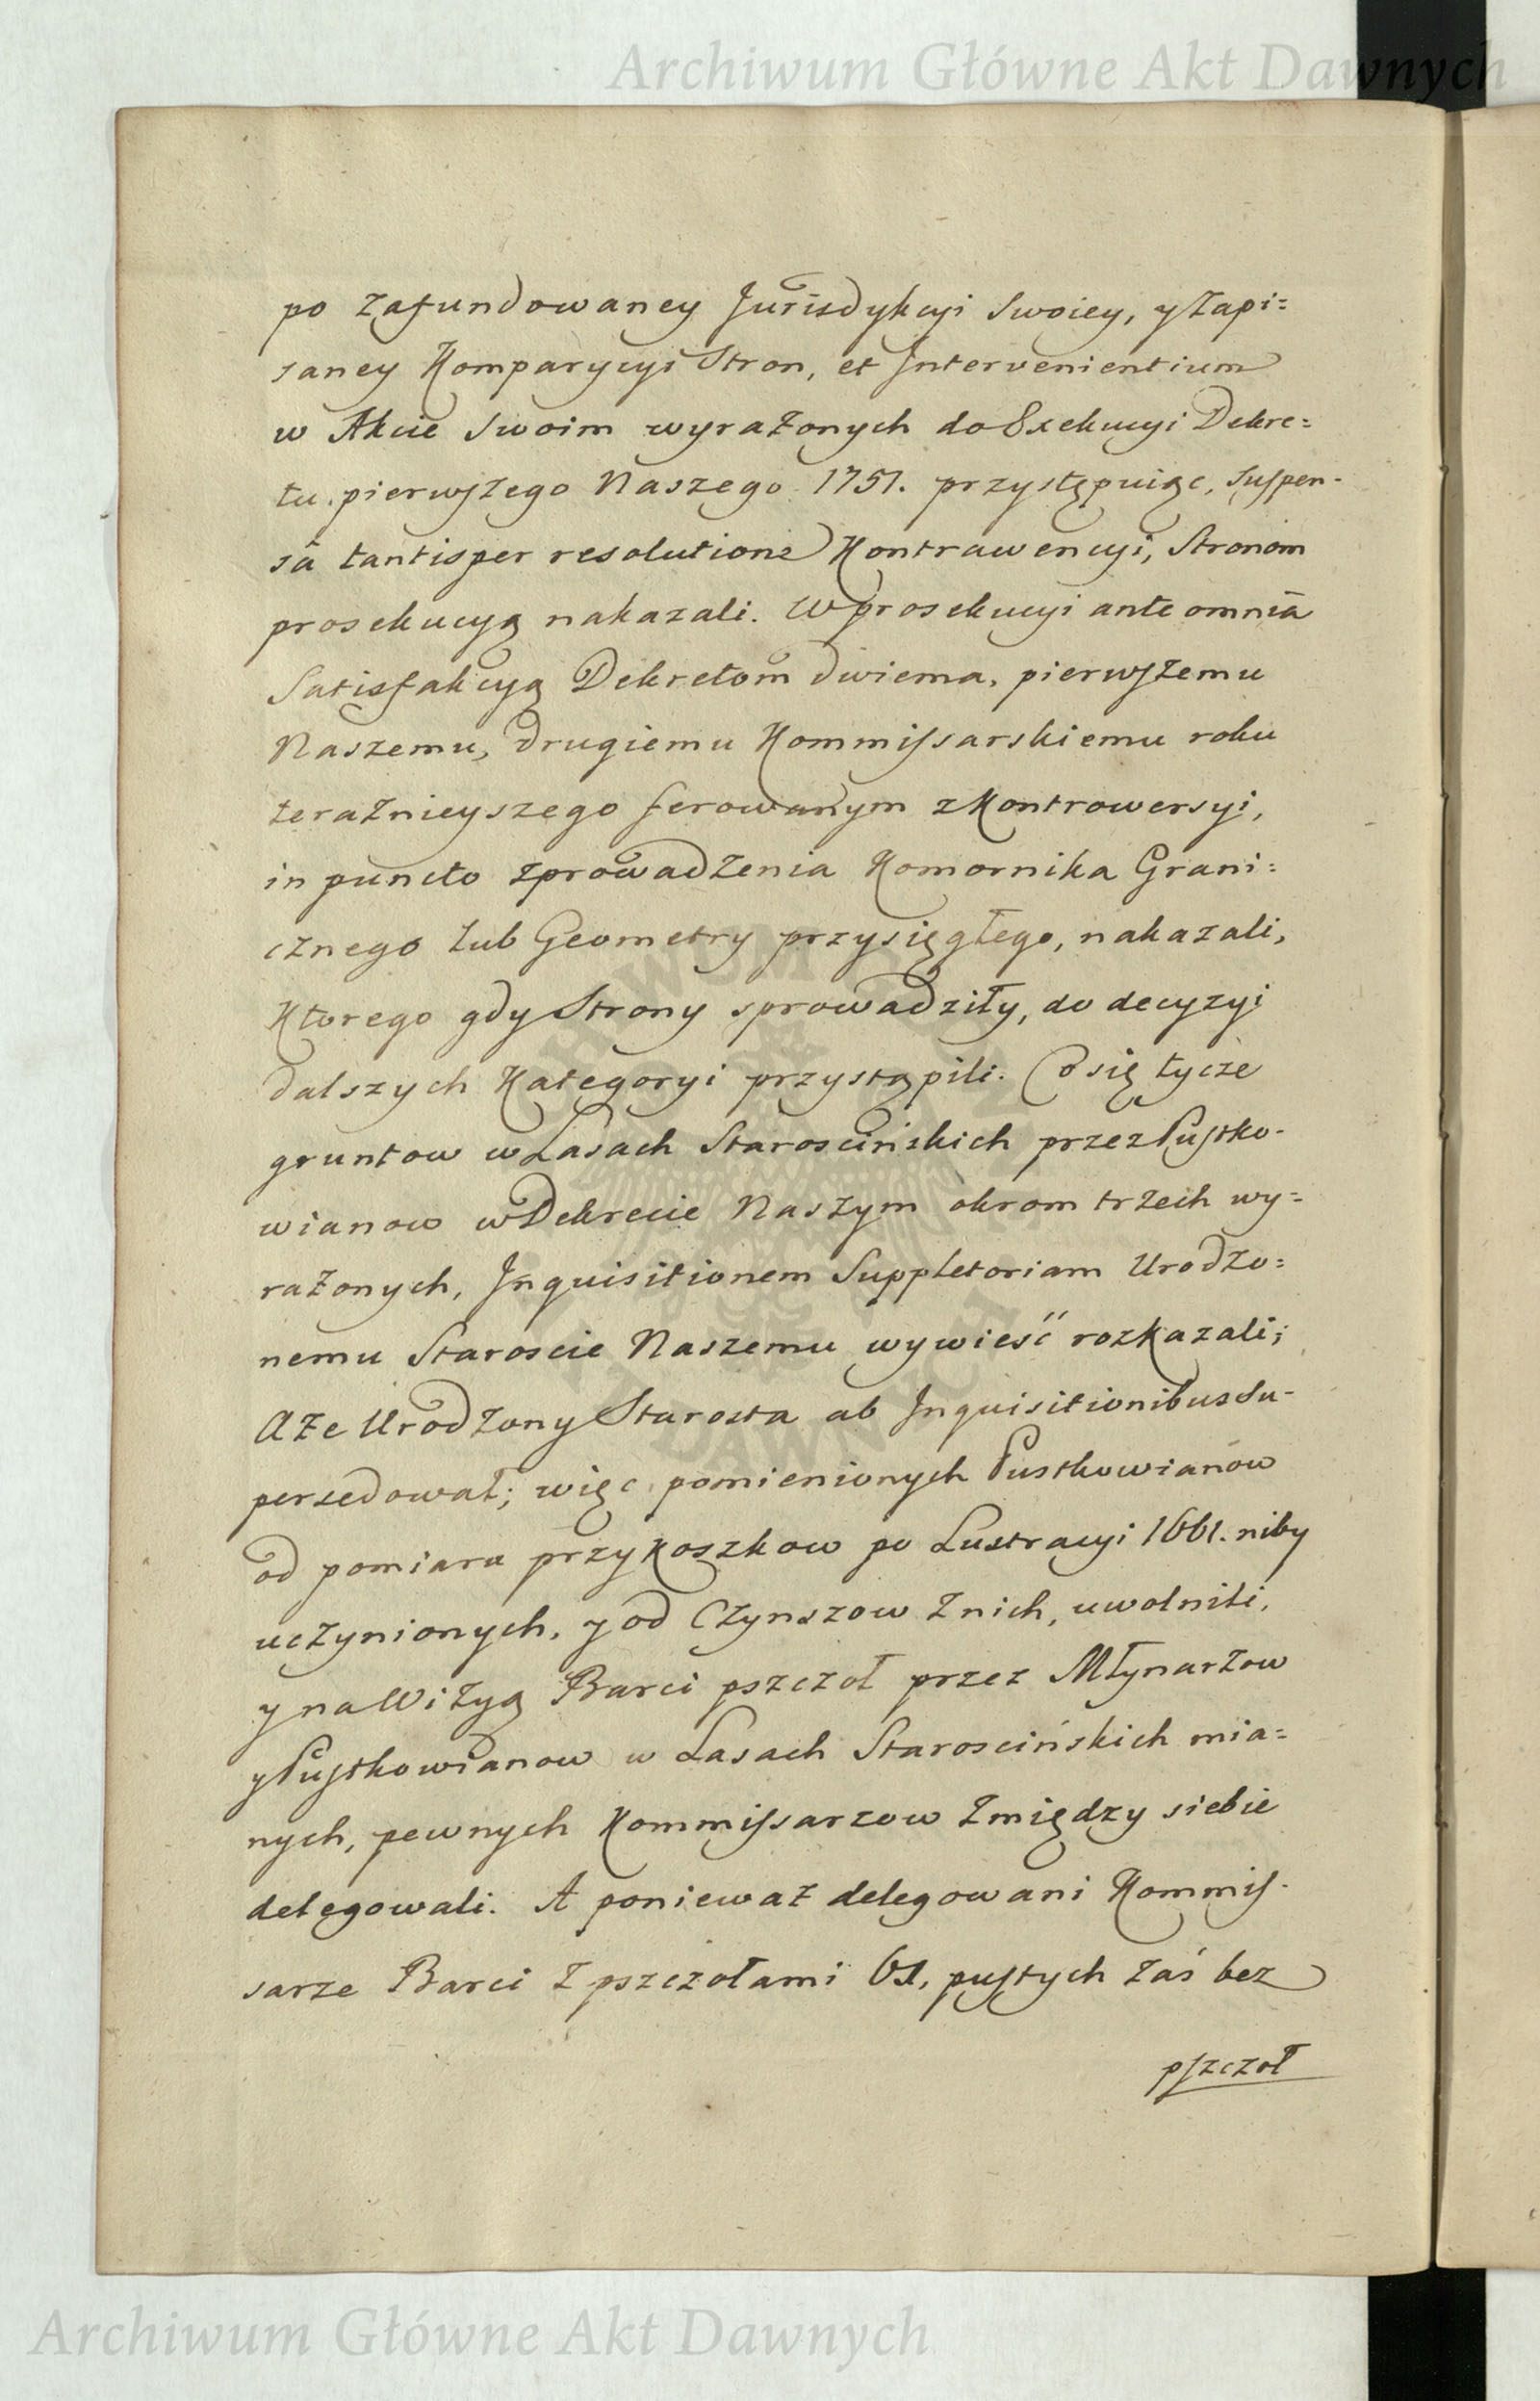 Archiwum Główne Akt Dawnych
po zafundowaney Jurisdykcyi Swoiey, y zapi=
saney Komparycyi Stron, et Intervenientium
w Akcie Swoim wyrażonych do Exekucyi Dekre=
tu pierwszego Naszego 1751. przystępuiąc, Suspen-
sâ tantisper resolutione Kontrawencyi, Stronom
prosekucyą nakazali. W prosekucyi ante omnia
Satisfakcyą Dekretom dwiema, pierwszemu
Naszemu, drugiemu Kommissarskiemu roku
teraźnieyszego ferowanym z Kontrowersyi,
in puncto zprowadzenia Komornika Grani=
cznego lub Geometry przysięgłego, nakazali,
Ktorego gdy Strony sprowadziły, do decyzyi
dalszych Kategoryi przystąpili. Co się tycze
gruntow w Lasach Starościńskich przez Pustko-
wianow w Dekrecie Naszym okrom trzech wy=
rażonych, Inquisitionem Suppletoriam Urodzo=
nemu Staroście Naszemu wywieść rozkazali;
A że Urodzony Starosta ab Inquisitionibus Su-
persedował; więc pomienionych Pustkowianow
od pomiaru przykoszkow po Lustracyi 1661. niby
uczynionych, y od Czynszow z nich, uwolnili,
y na Wizyą Barci pszczoł przez Młynarzow
y Pustkowianow w Lasach Starościńskich mia=
nych, pewnych Kommissarzow z między siebie
delegowali. A ponieważ delegowani Kommis-
sarze Barci z pszczołami 61, pustych zaś bez
pszczoł
Archiwum Główne Akt Dawnych